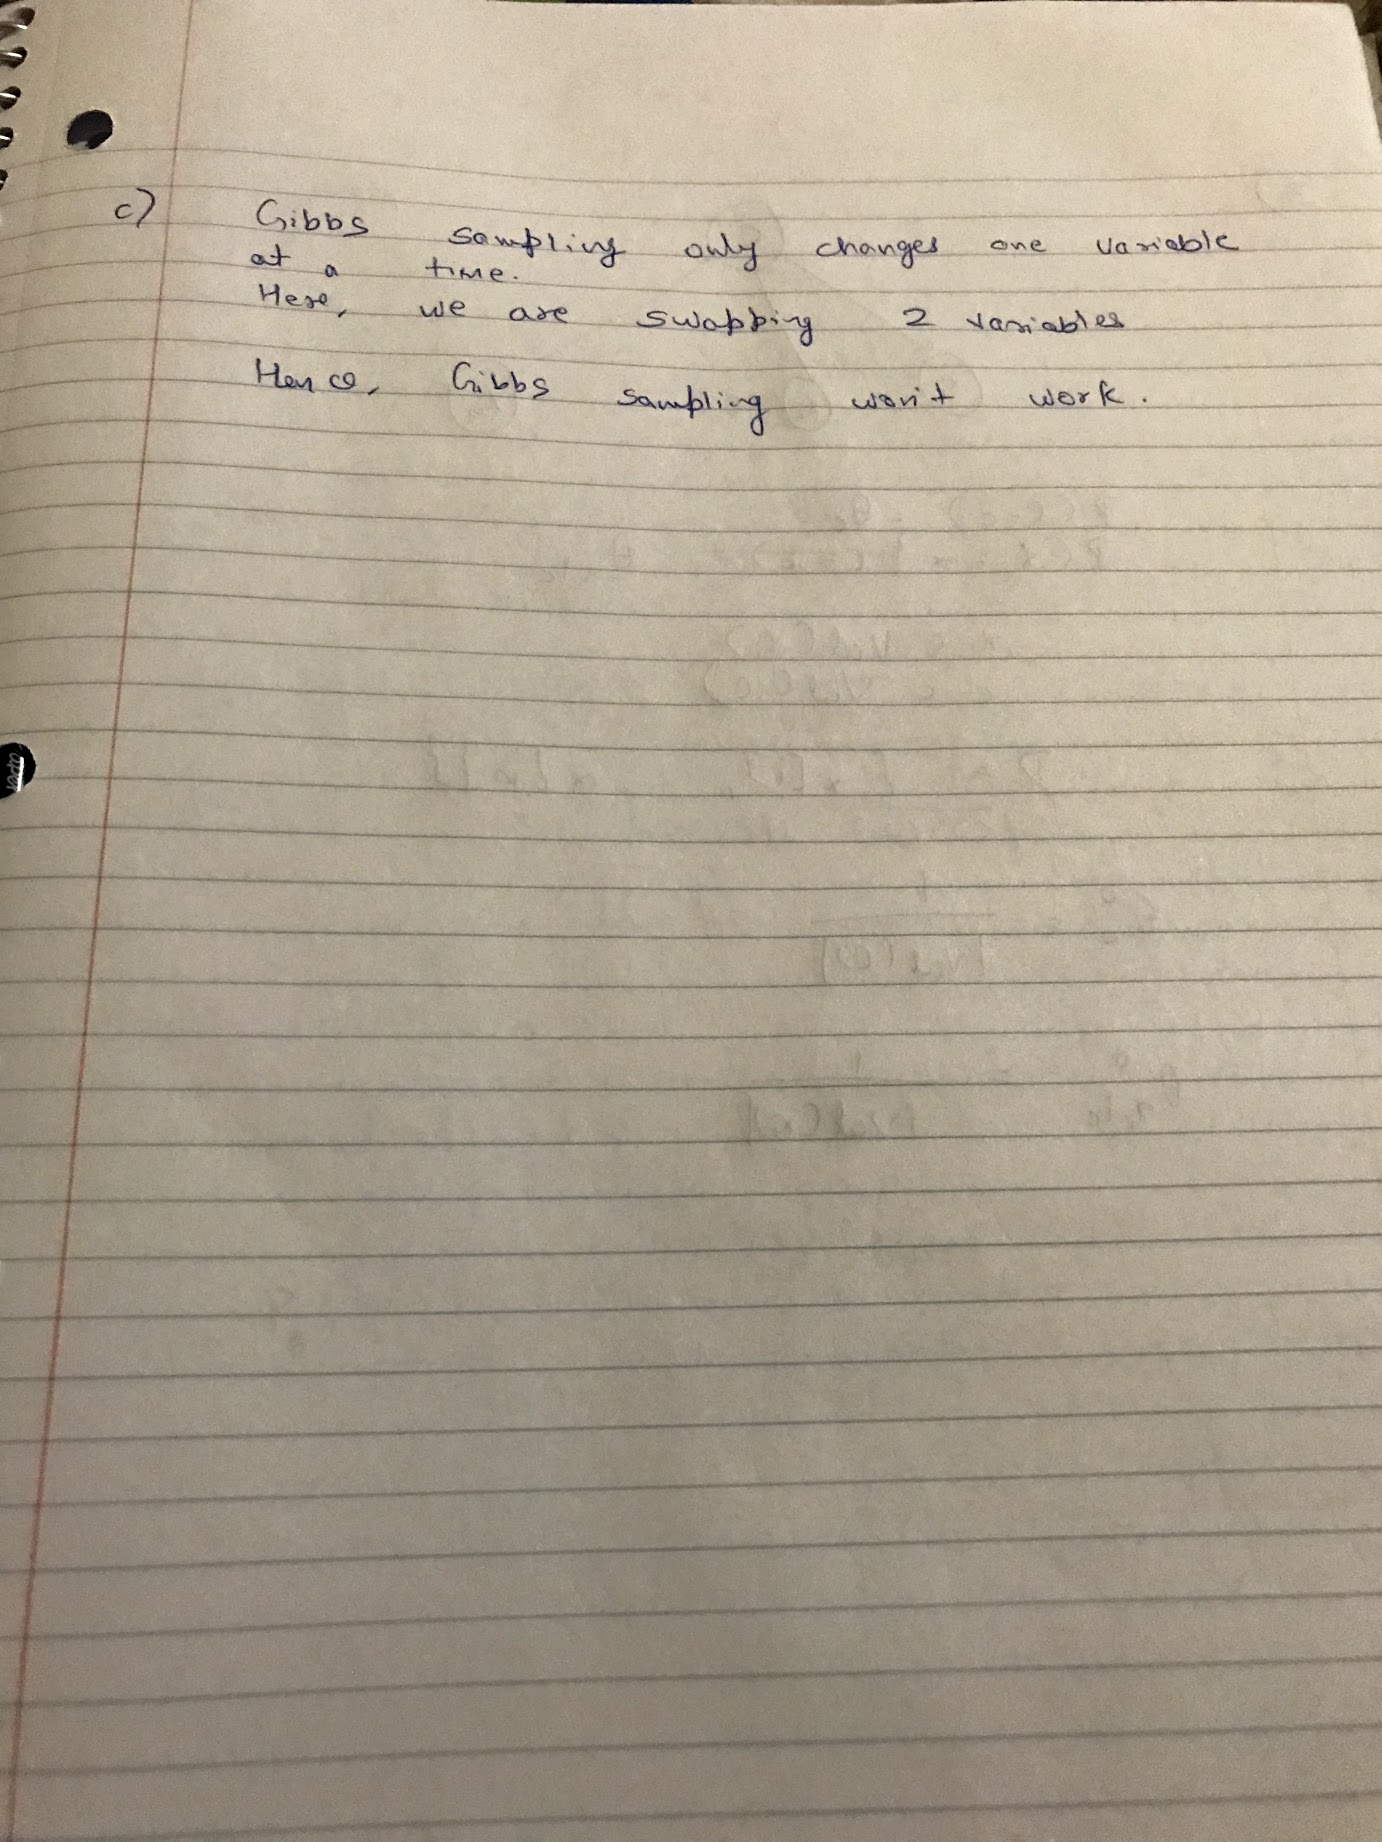 c) Gibbs sampling only changes one variable
at a time.
Here, we are swapping 2 variables
Hence, Gibbs sampling won't work.